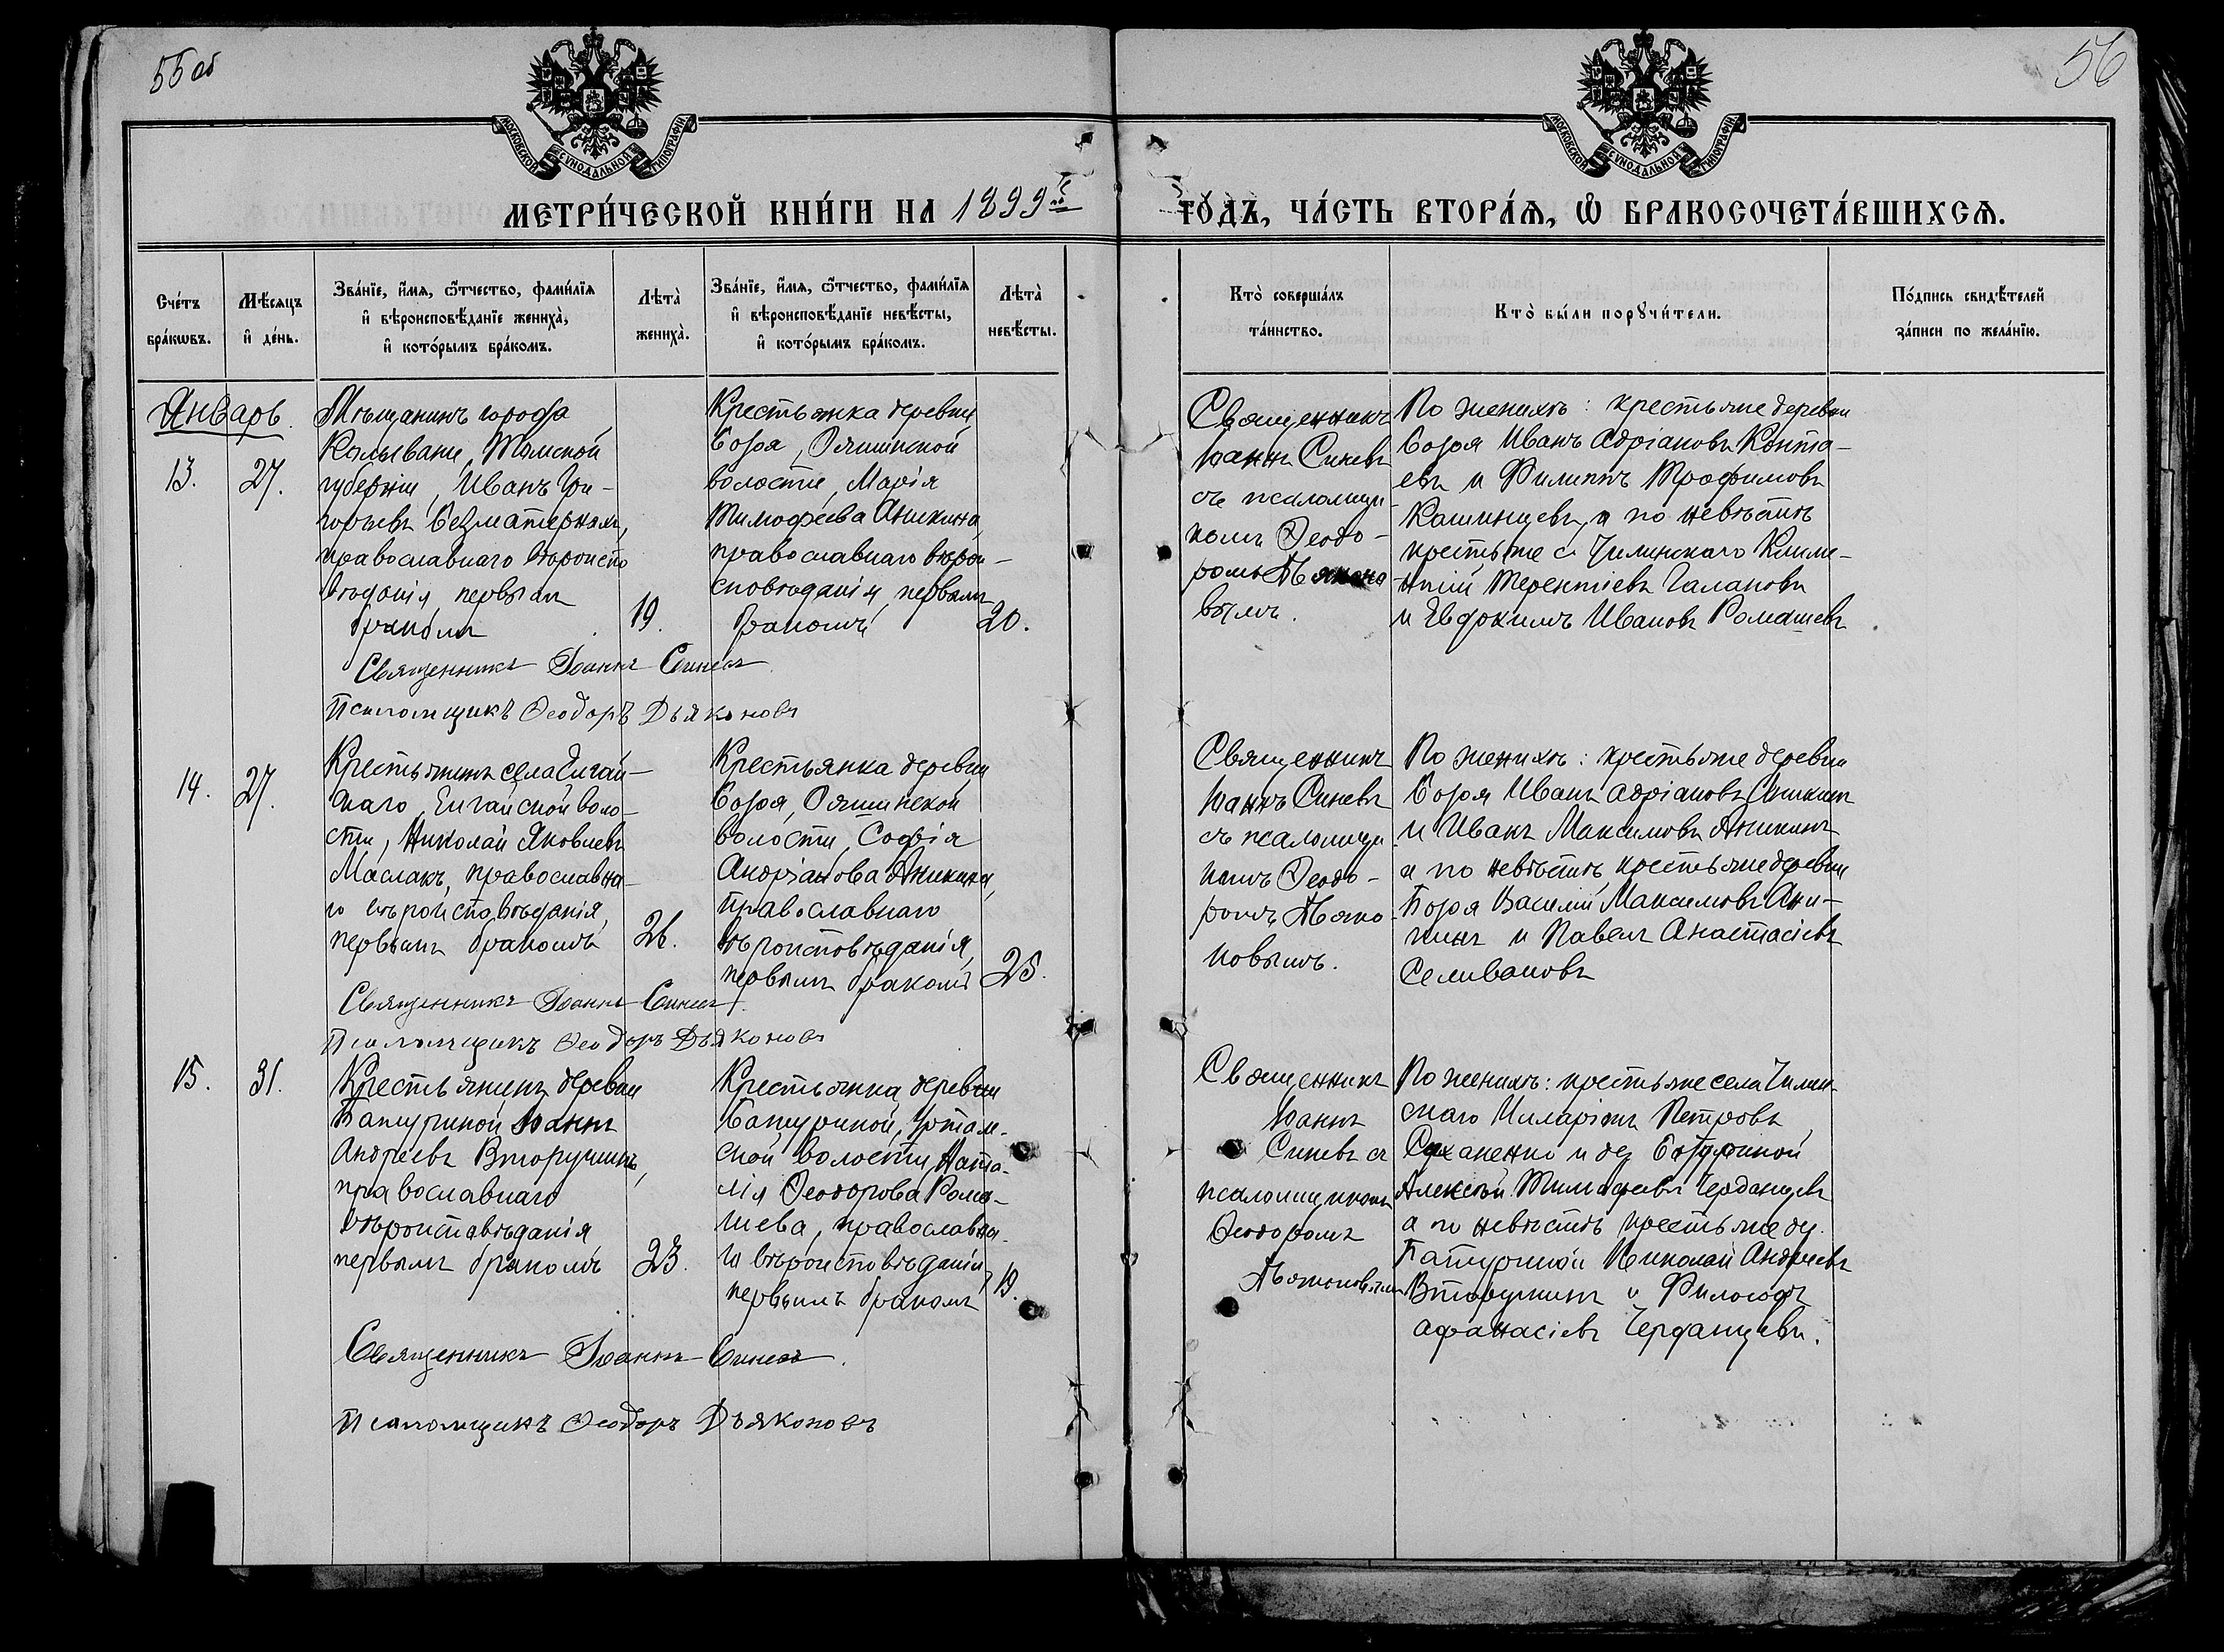 55 об
56
МОСКОВСКОЙ СѴНОДАЛЬНОЙ ТИПОГРАФІИ
МОСКОВСКОЙ СѴНОДАЛЬНОЙ ТИПОГРАФІИ
МЕТРИ́ЧЕСКОЙ КНИ́ГИ НА 1899й
ГО́ДЪ, ЧА́СТЬ ВТОРА́Я, Ѽ БРАКОСОЧЕТА́ВШИХСЯ.
Сче́тъ
бра́кѡвъ.
Мѣ́сяцъ
и҆ де́нь.
Зва́нїе, и҆́мя, ѻ҆́тчество, фами́лїя
и҆ вѣроисповѣ́данїе жениха̀,
и҆ кото́рымъ бра́комъ.
Лѣта̀
жениха̀.
Зва́нїе, и҆́мя, ѻ҆́тчество, фами́лїя
и҆ вѣроисповѣ́данїе невѣ́сты,
и҆ кото́рымъ бра́комъ.
Лѣта̀
невѣ́сты.
Кто̀ соверша́лъ
та́инство.
Кто̀ бы́ли порꙋчи́тели.
По́дпись свидѣ́телей
за́писи по жела́нїю.
Январь.
13.
27.
Мѣщанинъ города
Колывани, Томской
губерніи, Иванъ Гри-
горьевъ Безматерныхъ,
православнаго вѣроиспо
вѣданія, первымъ
бракомъ
19.
Крестьянка деревни
Бобря, Ояшинской
волости, Марія
Тимофѣева Аникина,
православнаго вѣрои-
сповѣданія, первымъ
бракомъ
20.
Священникъ
Іоаннъ Синевъ
съ псаломщи-
комъ Ѳеодо-
ромъ Дьяконо
вымъ.
По женихѣ: крестьяне деревни
Иванъ Адріановъ
евъ и Филиппъ Трофимовъ
а по невѣстѣ
крестьяне с. Чилинскаго Климе-
нтій Терентіевъ Галановъ
и Евдокимъ Ивановъ Ромашевъ
Священникъ Іоаннъ Синевъ
Псаломщикъ Ѳеодоръ Дьяконовъ
14.
27.
Крестьянинъ села
Николай Яковлевъ
Маслакъ, православна-
го вѣроисповѣданія,
первымъ бракомъ
26.
Крестьянка деревни
Бобря, Ояшинской
волости, Софія
Андріанова Аникина,
православнаго
вѣроисповѣданія,
первымъ бракомъ
25.
Священникъ
Іоаннъ Синевъ
съ псаломщи
комъ Ѳеодо-
ромъ Дьяко-
новымъ.
По женихѣ: крестьяне деревни
Бобря Иванъ Адріановъ Аникинъ
и Иванъ Максимовъ Аникинъ
а по невѣстѣ крестьяне деревни
Бобря Василій Максимовъ Ани-
кинъ и Павелъ Анастасіевъ
Селивановъ
Священникъ Іоаннъ Синевъ
Псаломщикъ Ѳеодоръ Дьяконовъ
15.
31.
Крестьянинъ деревни
Батуриной Іоаннъ
Андреевъ Вторушинъ,
православнаго
вѣроисповѣданія
первымъ бракомъ
23.
Крестьянка деревни
Батуриной, Уртам-
ской волости, Ната-
лія Ѳеодорова Рома-
шева, православна-
го вѣроисповѣданія,
первымъ бракомъ
19.
Священникъ
Іоаннъ
Синевъ съ
псаломщикомъ
Ѳеодоромъ
Дьяконовымъ
По женихѣ: крестьяне села Чилин-
скаго Иларіонъ Петровъ
и дер. Батуриной
Алексѣй Тимофѣевъ Черданцевъ
а по невѣстѣ крестьяне дер.
Батуриной Николай Андреевъ
Вторушинъ и Философъ
Афанасіевъ Черданцевъ.
Священникъ Іоаннъ Синевъ.
Псаломщикъ Ѳеодоръ Дьяконовъ